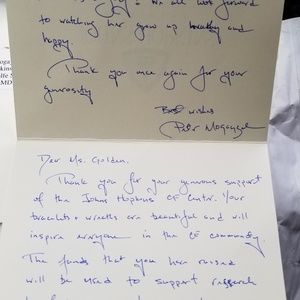 We all look forward
to watching her grow up healthy and
happy.
Thank you once again for your
generosity
Best wishes
Peter Mogayzel
Dear Ms. Golden,
Thank you for your generous support
of the Johns Hopkins CF Center. Your
bracelets + wreaths are beautiful and will
inspire everyone in the CF community.
The funds that you have raised
will be used to support research